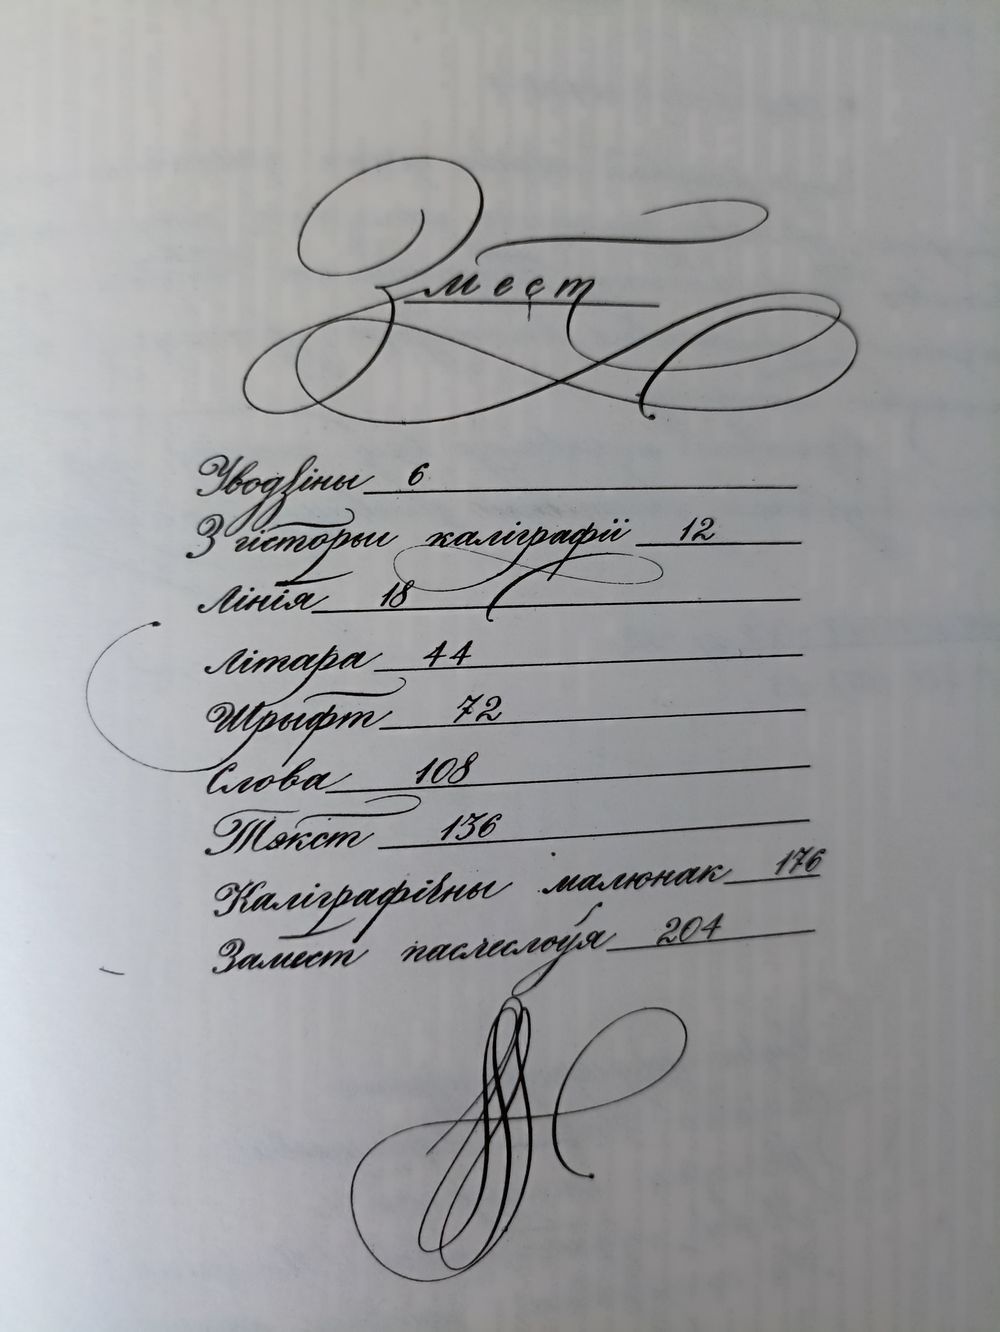 Змест
Уводзіны 6
З гісторыі каліграфіі 12
Лінія 18
Літара 44
Шрыфт 72
Слова 108
Тэкст 136
Каліграфічны малюнак 176
Замест пасляслоўя 204